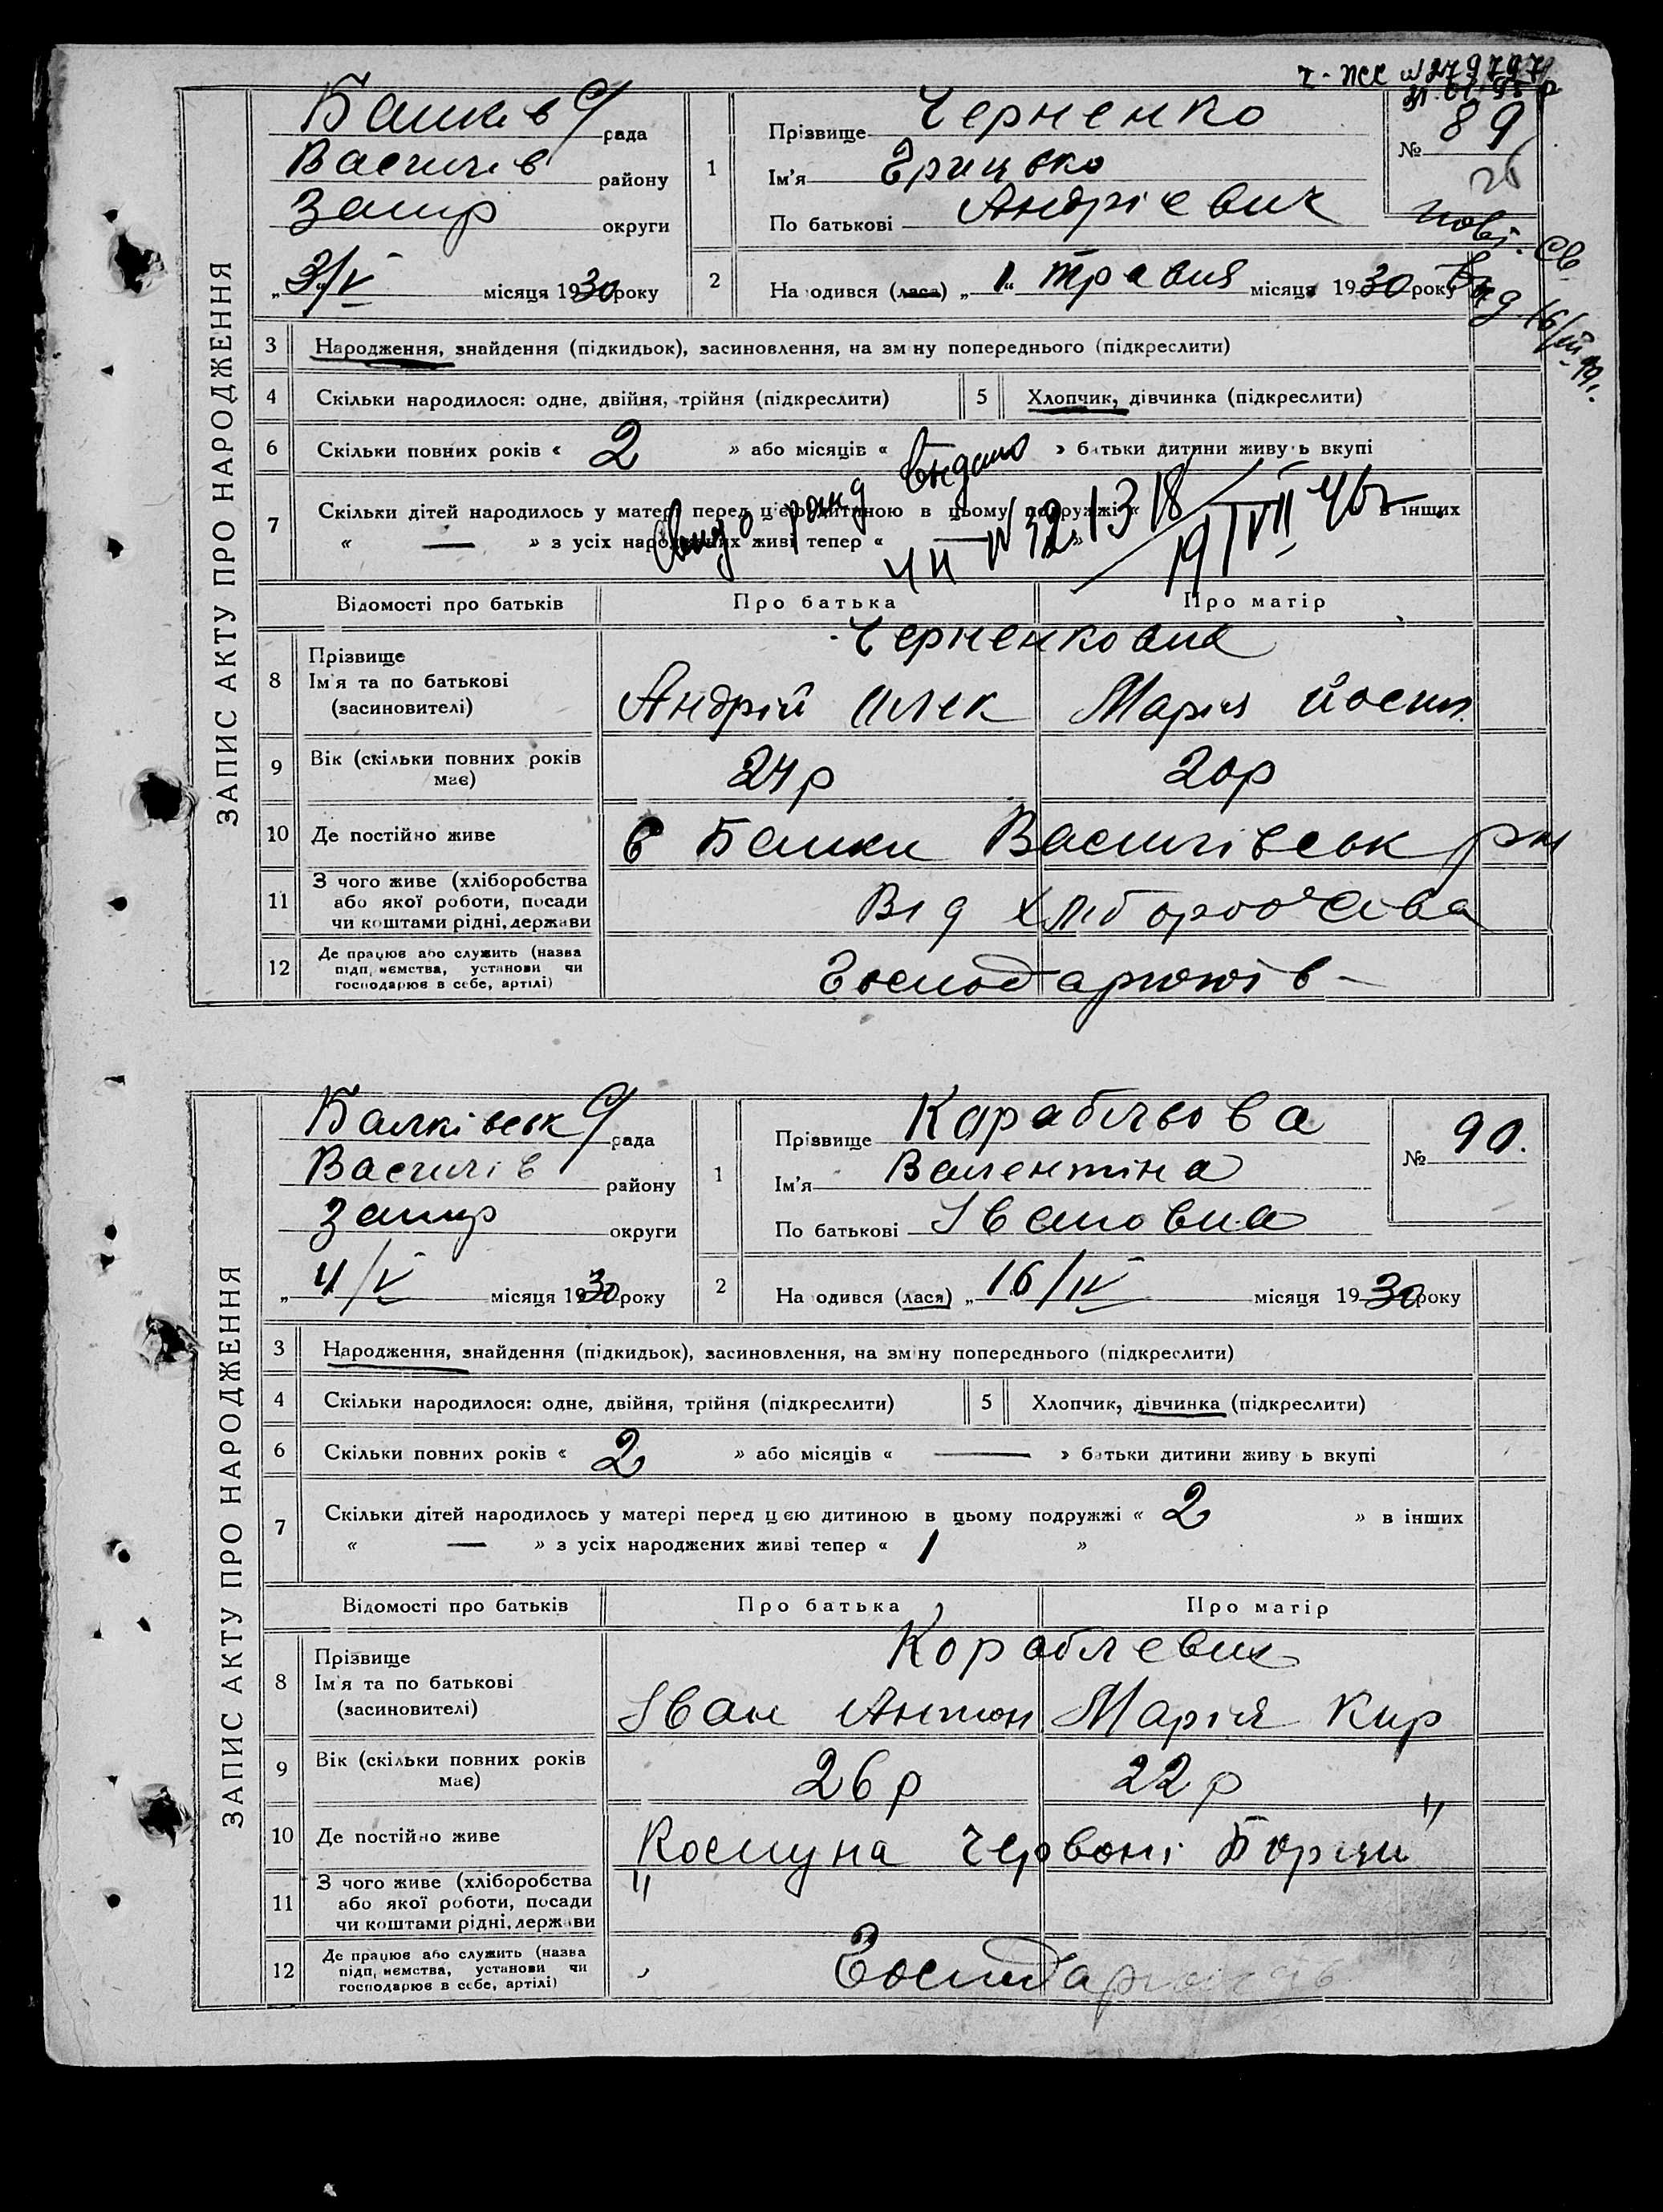 I-ЖС № 279797
ЗАПИС АКТУ ПРО НАРОДЖЕННЯ
Балків с/рада
Василів району
Запор округи
„3/V місяця 1930 року
1 Прізвище Черненко
Ім'я Грицько
По батькові Андрієвич
№ 89
2 На одився (лася) „1“ травня місяця 1930 року
3 Народження, знайдення (підкидьок), засиновлення, на зміну попереднього (підкреслити)
4 Скільки народилося: одне, двійня, трійня (підкреслити)
5 Хлопчик, дівчинка (підкреслити)
6 Скільки повних років « 2 » або місяців « » батьки дитини живуть вкупі
видано
7 Скільки дітей народилось у матері перед цією дитиною в цьому подружжі « в інших
« — » з усіх народжених живі тепер « — »
Відомості про батьків Про батька Про матір
8 Прізвище
Ім'я та по батькові
(засиновителі)
Черненкови
Андрій Олек Марія Йосип.
9 Вік (скільки повних років має)
24 р 20 р
10 Де постійно живе
с Балки Василівськ р-н
11 З чого живе (хліборобства
або якої роботи, посади
чи коштами рідні, держави
Від хліборобства
12 Де працює або служить (назва
підприємства, установи чи
господарює в себе, артілі)
ЗАПИС АКТУ ПРО НАРОДЖЕННЯ
Балківськ с/рада
Василів району
Запор округи
„4/V місяця 1930 року
1 Прізвище Карабльова
Ім'я Валентіна
По батькові Івановна
№ 90.
2 На одився (лася) „16/IV місяця 1930 року
3 Народження, знайдення (підкидьок), засиновлення, на зміну попереднього (підкреслити)
4 Скільки народилося: одне, двійня, трійня (підкреслити)
5 Хлопчик, дівчинка (підкреслити)
6 Скільки повних років « 2 » або місяців « — » батьки дитини живуть вкупі
7 Скільки дітей народилось у матері перед цією дитиною в цьому подружжі « 2 » в інших
« — » з усіх народжених живі тепер « 1 »
Відомості про батьків Про батька Про матір
8 Прізвище
Ім'я та по батькові
(засиновителі)
Кораблеви
Іван Антон Марія Кир
9 Вік (скільки повних років має)
26 р 22 р
10 Де постійно живе
Комуна „Червоні Борци"
11 З чого живе (хліборобства
або якої роботи, посади
чи коштами рідні, держави
12 Де працює або служить (назва
підприємства, установи чи
господарює в себе, артілі)